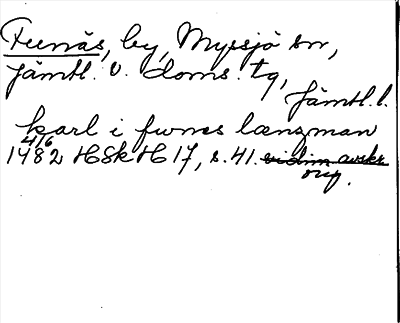 Funäs, by, Myssjö sn,
Jämtl. v. doms. tg,
Jämtl. l.
karl i funes længman
4/6
1482 HSkH 17, s. 41. vidim avskr
orig.